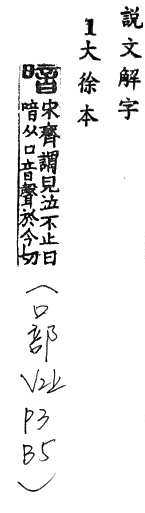 説文解字
1大徐本
喑 宋齊謂兒泣不止曰
喑从口音聲於今切
(口部
V2上
P3
B5)